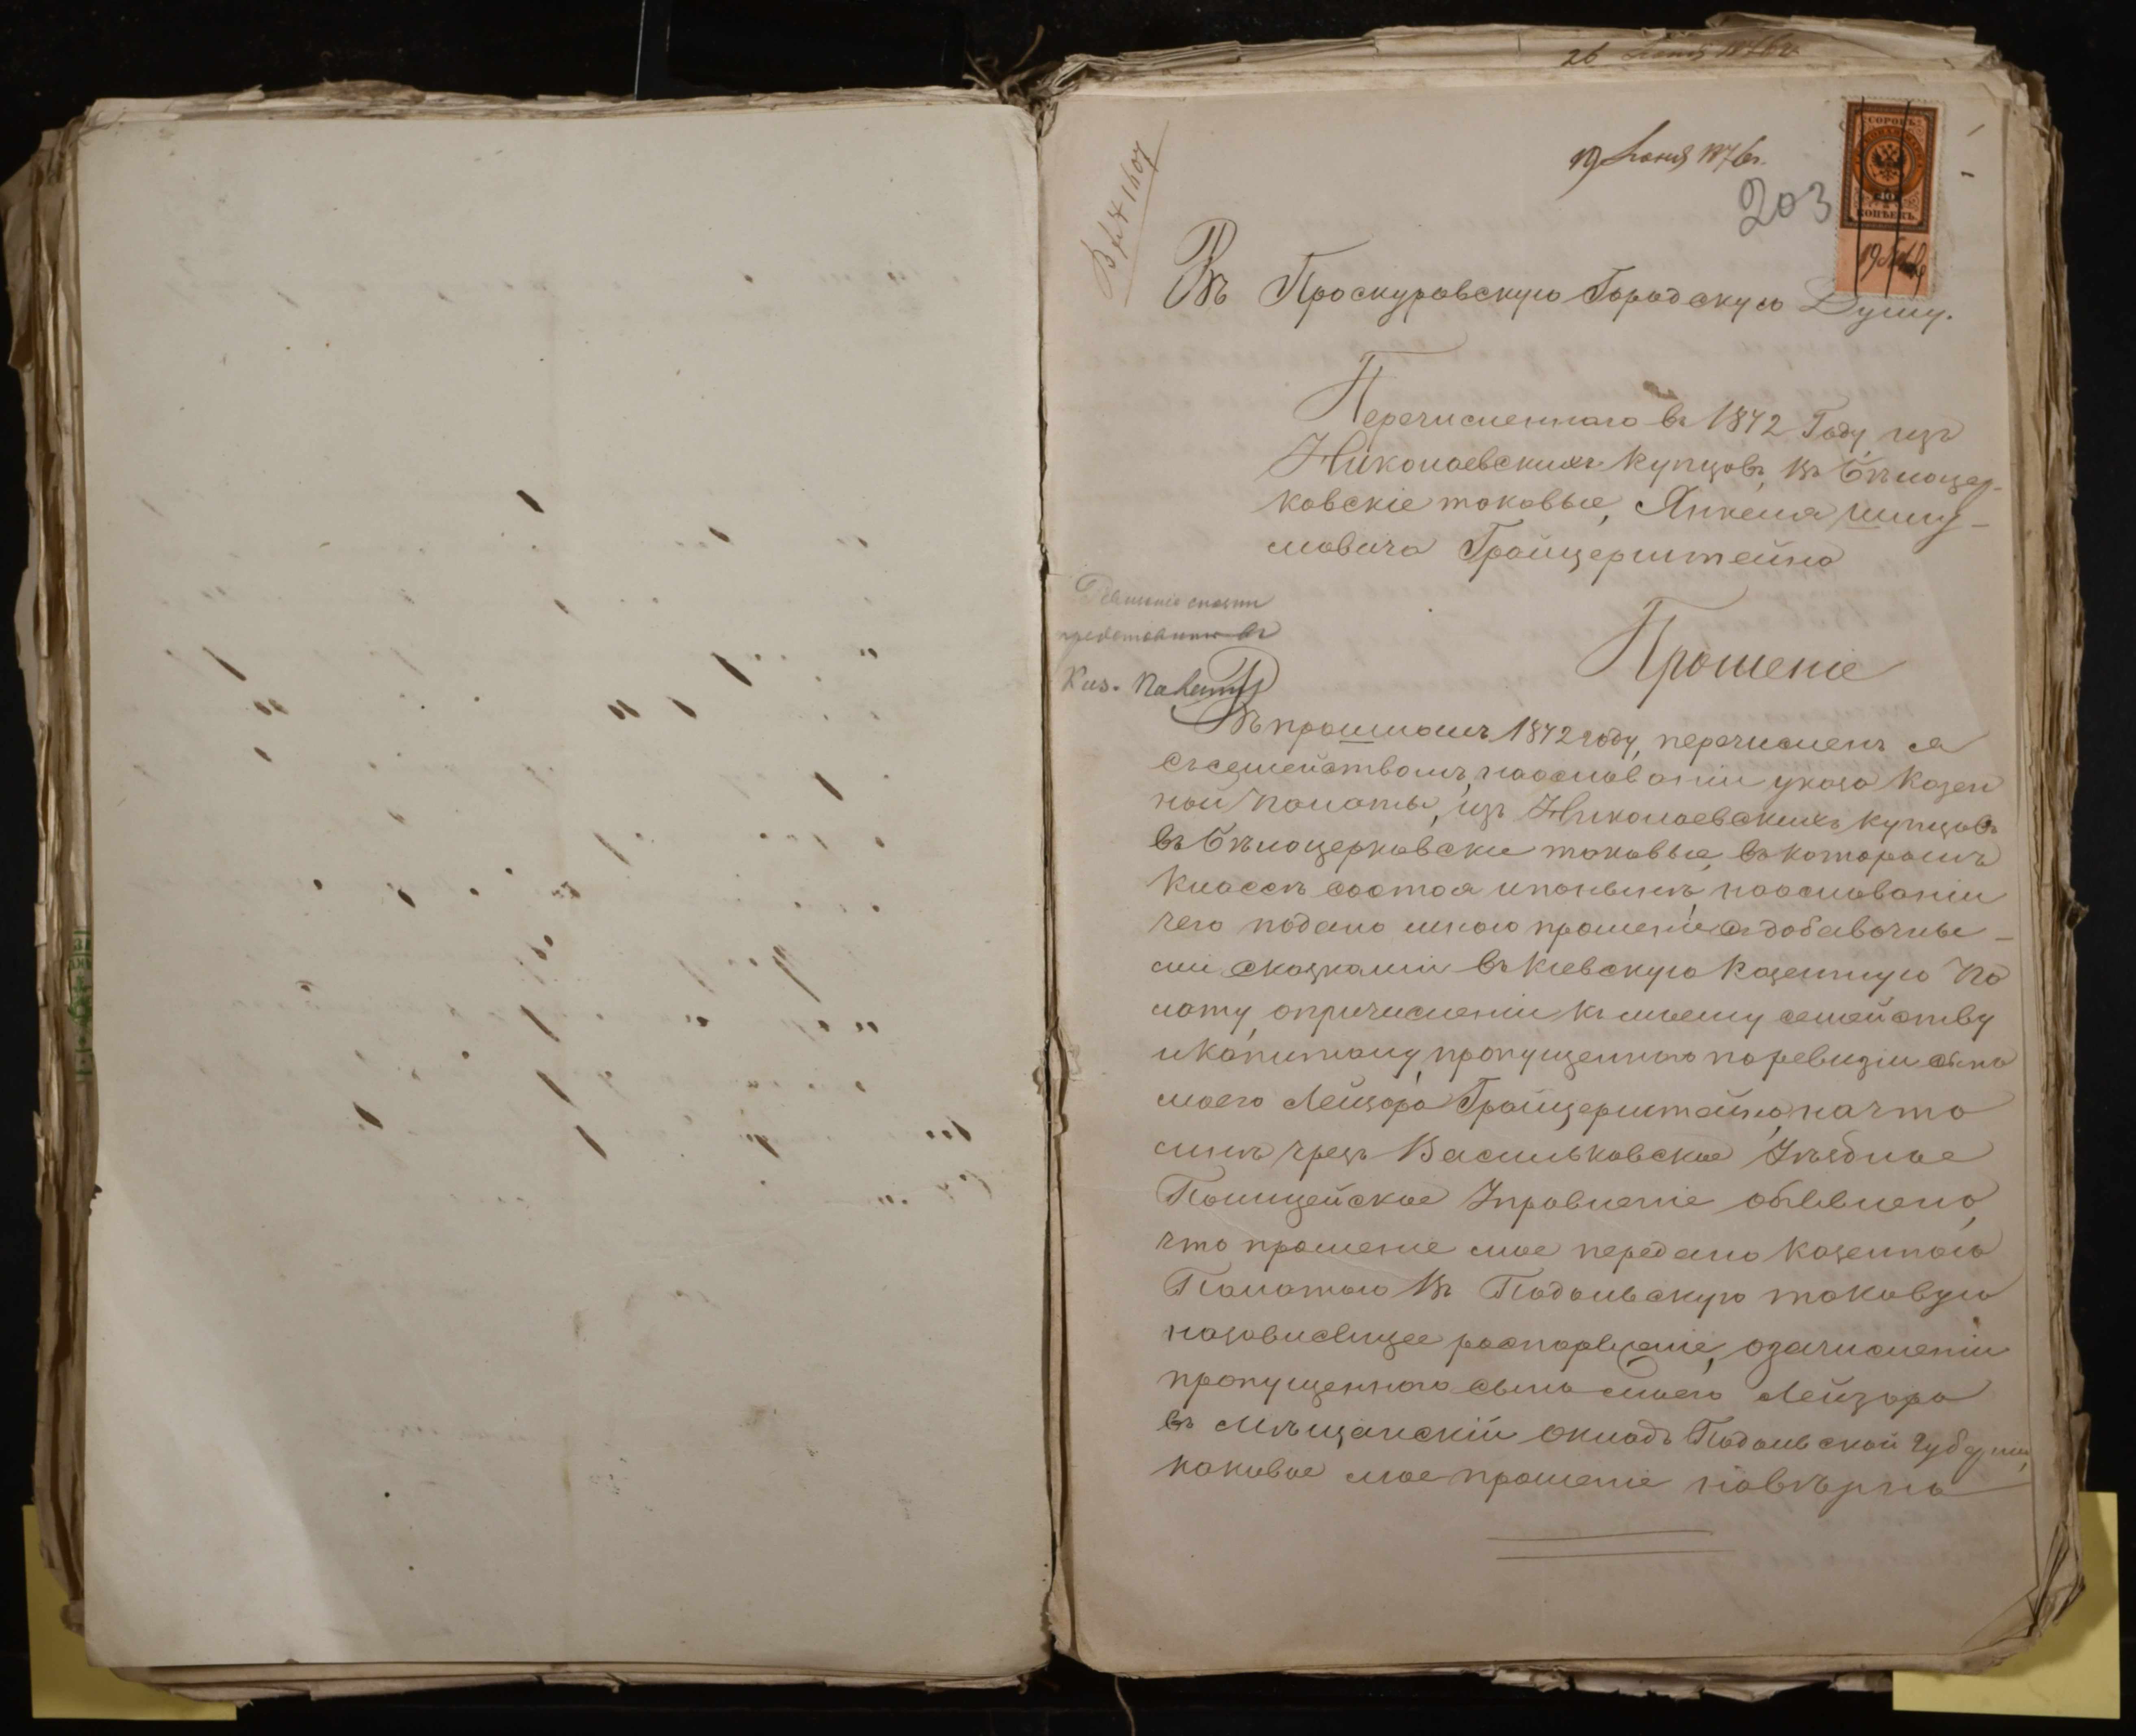 26 Іюня 1876 г.
19 Іюня 1876 г.
203
СОРОКЪ
40
КОПѢЕКЪ
Вх. № 1607
Въ Проскуровскую Городскую Думу.
Перечисленнаго въ 1872 Году изъ
Николаевскихъ Купцовъ, въ Бѣлоцер-
ковскіе таковые, Янкеля Шму-
ловича Грайцерштейна
Прошеніе
представить въ
Каз. Палату
Въ прошломъ 1872 году, перечисленъ я
съ семействомъ, на основаніи указа Казен
ной Палаты, изъ Николаевскихъ Купцовъ
въ Бѣлоцерковскіе таковые, въ которомъ
Классѣ состоя и понынѣ, на основаніи
чего подано мною прошеніе съ добавочны-
ми сказками въ Кіевскую Казенную Па
лату, о причисленіи къ моему семейству
и Капиталу, пропущеннаго по ревизіи сына
моего Лейзора Грайцерштейна, на что
мнѣ чрезъ Васильковское Уѣздное
Полицейское Управленіе объявлено,
что прошеніе мое передано Казенною
Палатою въ Подольскую таковую
на зависящее распоряженіе, о зачисленіи
пропущеннаго сына моего Лейзора
въ Мѣщанскій Окладъ Подольской Губерніи,
каковое мое прошеніе навѣрно